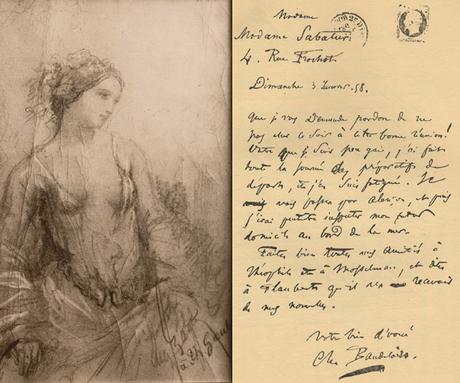 Madame
Madame Sabatier
4. Rue Frochot.
Dimanche 3 58.
Que je vous Demande pardon de ne
pas ce Soir à bonne réunion!
Votre que je Suis peu gai, j'ai fait
toute la journée des préparatifs de
départ, et j'en Suis fatigué. Je
vais passer par Alençon, et puis
j'irai mon futur
domicile au bord de la mer.
Faites bien mes amitiés à
Théophile à Mosselman, et dites
à Flaubert qu'il recevra
de mes nouvelles.
Votre bien dévoué
Ch. Baudelaire.
à Th. Gaut